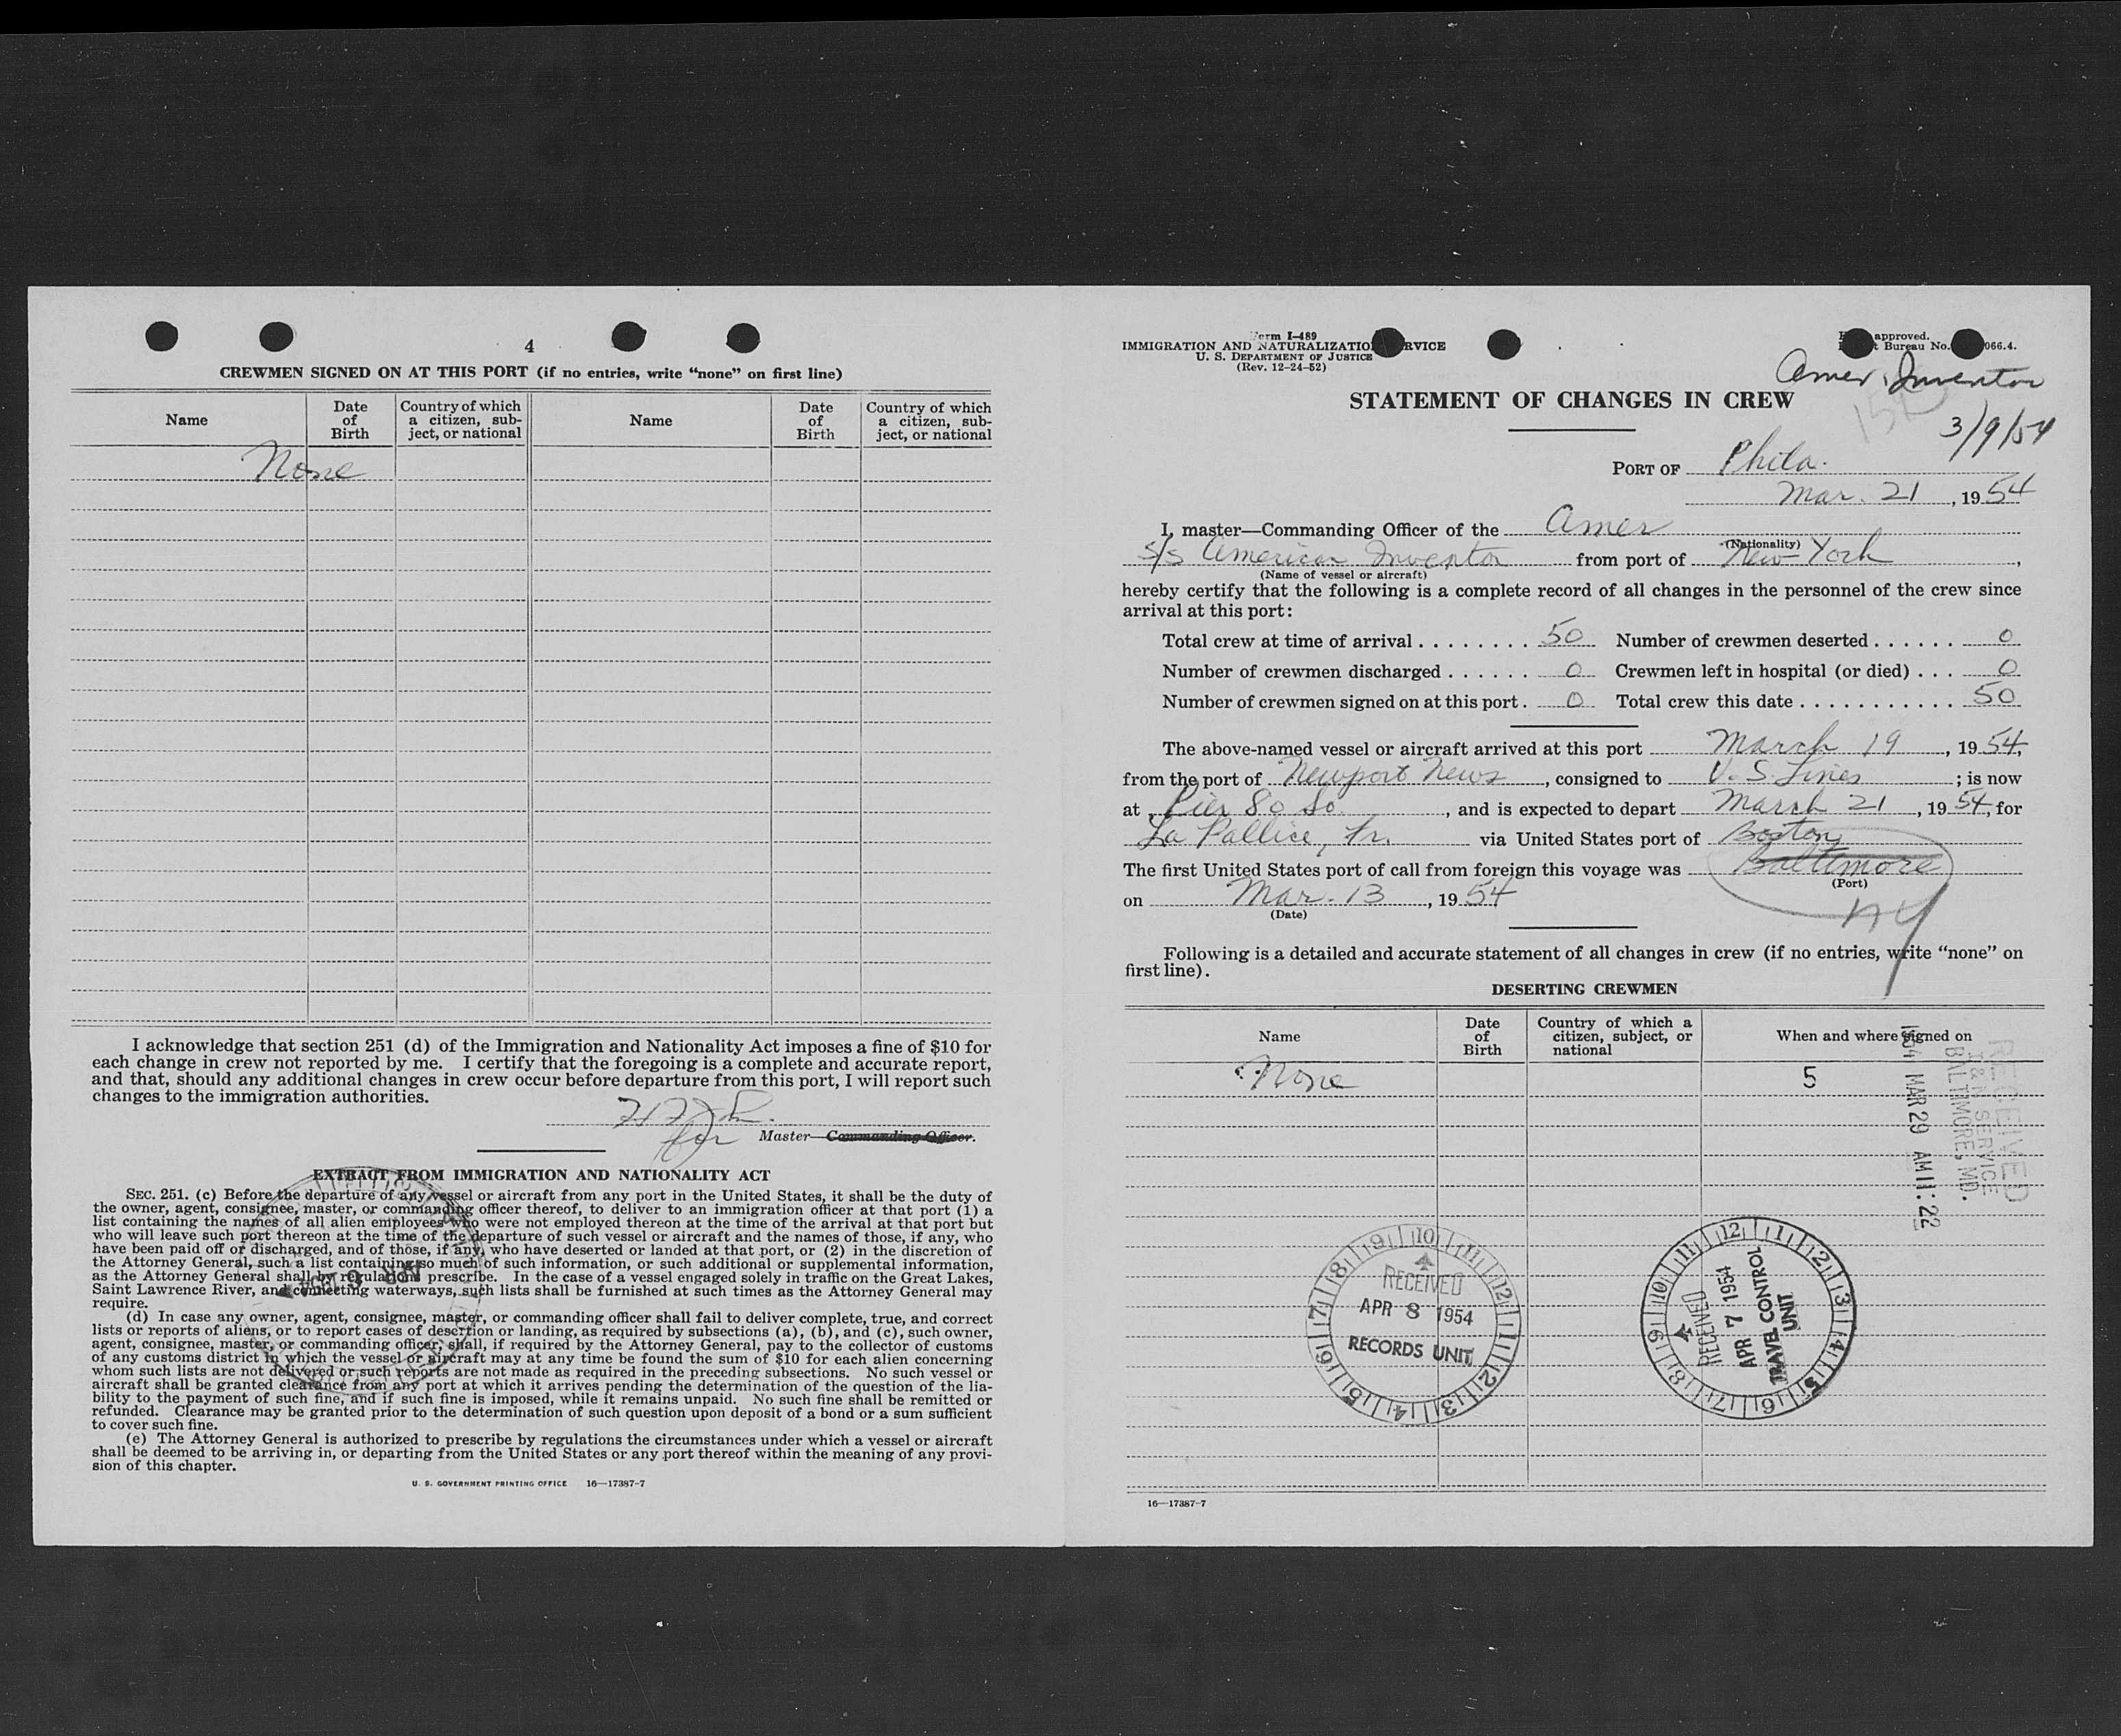 4
CREWMEN SIGNED ON AT THIS PORT (if no entries, write "none" on first line)
Name | Date of Birth | Country of which a citizen, subject, or national | Name | Date of Birth | Country of which a citizen, subject, or national
None
I acknowledge that section 251 (d) of the Immigration and Nationality Act imposes a fine of $10 for
each change in crew not reported by me. I certify that the foregoing is a complete and accurate report,
and that, should any additional changes in crew occur before departure from this port, I will report such
changes to the immigration authorities.
for Master—Commanding Officer.
EXTRACT FROM IMMIGRATION AND NATIONALITY ACT
SEC. 251. (c) Before the departure of any vessel or aircraft from any port in the United States, it shall be the duty of
the owner, agent, consignee, master, or commanding officer thereof, to deliver to an immigration officer at that port (1) a
list containing the names of all alien employees who were not employed thereon at the time of the arrival at that port but
who will leave such port thereon at the time of the departure of such vessel or aircraft and the names of those, if any, who
have been paid off or discharged, and of those, if any, who have deserted or landed at that port, or (2) in the discretion of
the Attorney General, such a list containing so much of such information, or such additional or supplemental information,
as the Attorney General shall by regulations prescribe. In the case of a vessel engaged solely in traffic on the Great Lakes,
Saint Lawrence River, and connecting waterways, such lists shall be furnished at such times as the Attorney General may
require.
(d) In case any owner, agent, consignee, master, or commanding officer shall fail to deliver complete, true, and correct
lists or reports of aliens, or to report cases of desertion or landing, as required by subsections (a), (b), and (c), such owner,
agent, consignee, master, or commanding officer, shall, if required by the Attorney General, pay to the collector of customs
of any customs district in which the vessel or aircraft may at any time be found the sum of $10 for each alien concerning
whom such lists are not delivered or such reports are not made as required in the preceding subsections. No such vessel or
aircraft shall be granted clearance from any port at which it arrives pending the determination of the question of the lia-
bility to the payment of such fine, and if such fine is imposed, while it remains unpaid. No such fine shall be remitted or
refunded. Clearance may be granted prior to the determination of such question upon deposit of a bond or a sum sufficient
to cover such fine.
(e) The Attorney General is authorized to prescribe by regulations the circumstances under which a vessel or aircraft
shall be deemed to be arriving in, or departing from the United States or any port thereof within the meaning of any provi-
sion of this chapter.
U. S. GOVERNMENT PRINTING OFFICE 16—17387-7
Form I-489
IMMIGRATION AND NATURALIZATION SERVICE
U. S. DEPARTMENT OF JUSTICE
(Rev. 12-24-52)
approved.
Bureau No. 066.4.
Amer. Inventor
3/9/54
STATEMENT OF CHANGES IN CREW
PORT OF Phila.
Mar. 21, 1954
I, master—Commanding Officer of the Amer
(Nationality)
S/S American Inventor from port of New York,
(Name of vessel or aircraft)
hereby certify that the following is a complete record of all changes in the personnel of the crew since
arrival at this port:
Total crew at time of arrival 50 Number of crewmen deserted 0
Number of crewmen discharged 0 Crewmen left in hospital (or died) 0
Number of crewmen signed on at this port 0 Total crew this date 50
The above-named vessel or aircraft arrived at this port March 19, 1954,
from the port of Newport News, consigned to U. S. Lines; is now
at Pier 80 So., and is expected to depart March 21, 1954, for
La Pallice, Fr. via United States port of Boston
The first United States port of call from foreign this voyage was Baltimore
(Port)
NY
on Mar. 13, 1954
(Date)
Following is a detailed and accurate statement of all changes in crew (if no entries, write "none" on
first line).
DESERTING CREWMEN
Name | Date of Birth | Country of which a citizen, subject, or national | When and where signed on
None 5
RECEIVED
I & N SERVICE
BALTIMORE, MD.
1954 MAR 29 AM 11:22
RECEIVED
APR 8 1954
RECORDS UNIT
RECEIVED
APR 7 1954
TRAVEL CONTROL
UNIT
16—17387-7